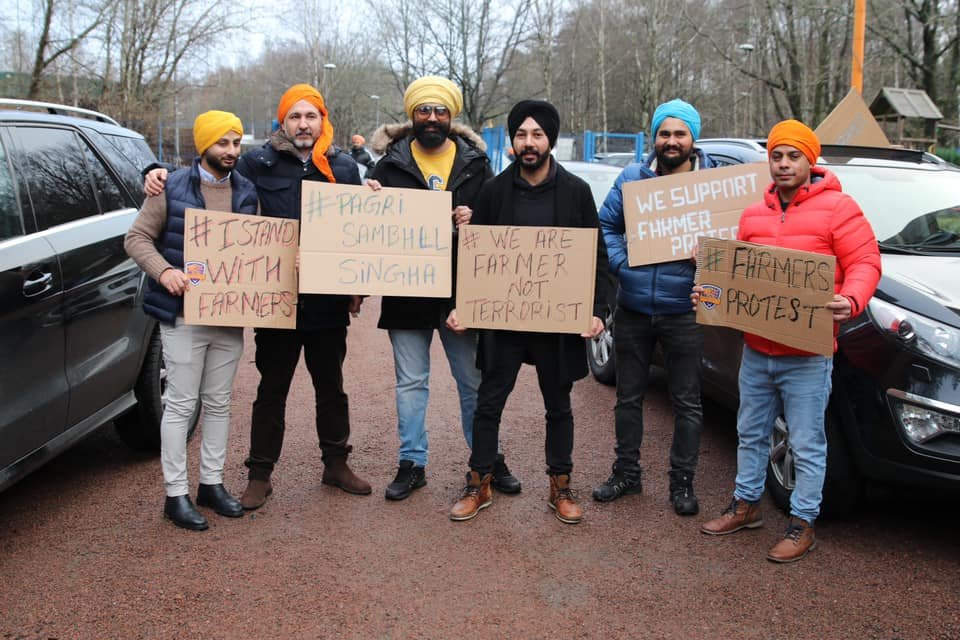 # I STAND
WITH
FARMERS
#PAGRI
SAMBHLL
SINGHA
# WE ARE
FARMER
NOT
TERRORIST
WE SUPPORT
FARMER
PROTEST
#FARMERS
PROTEST